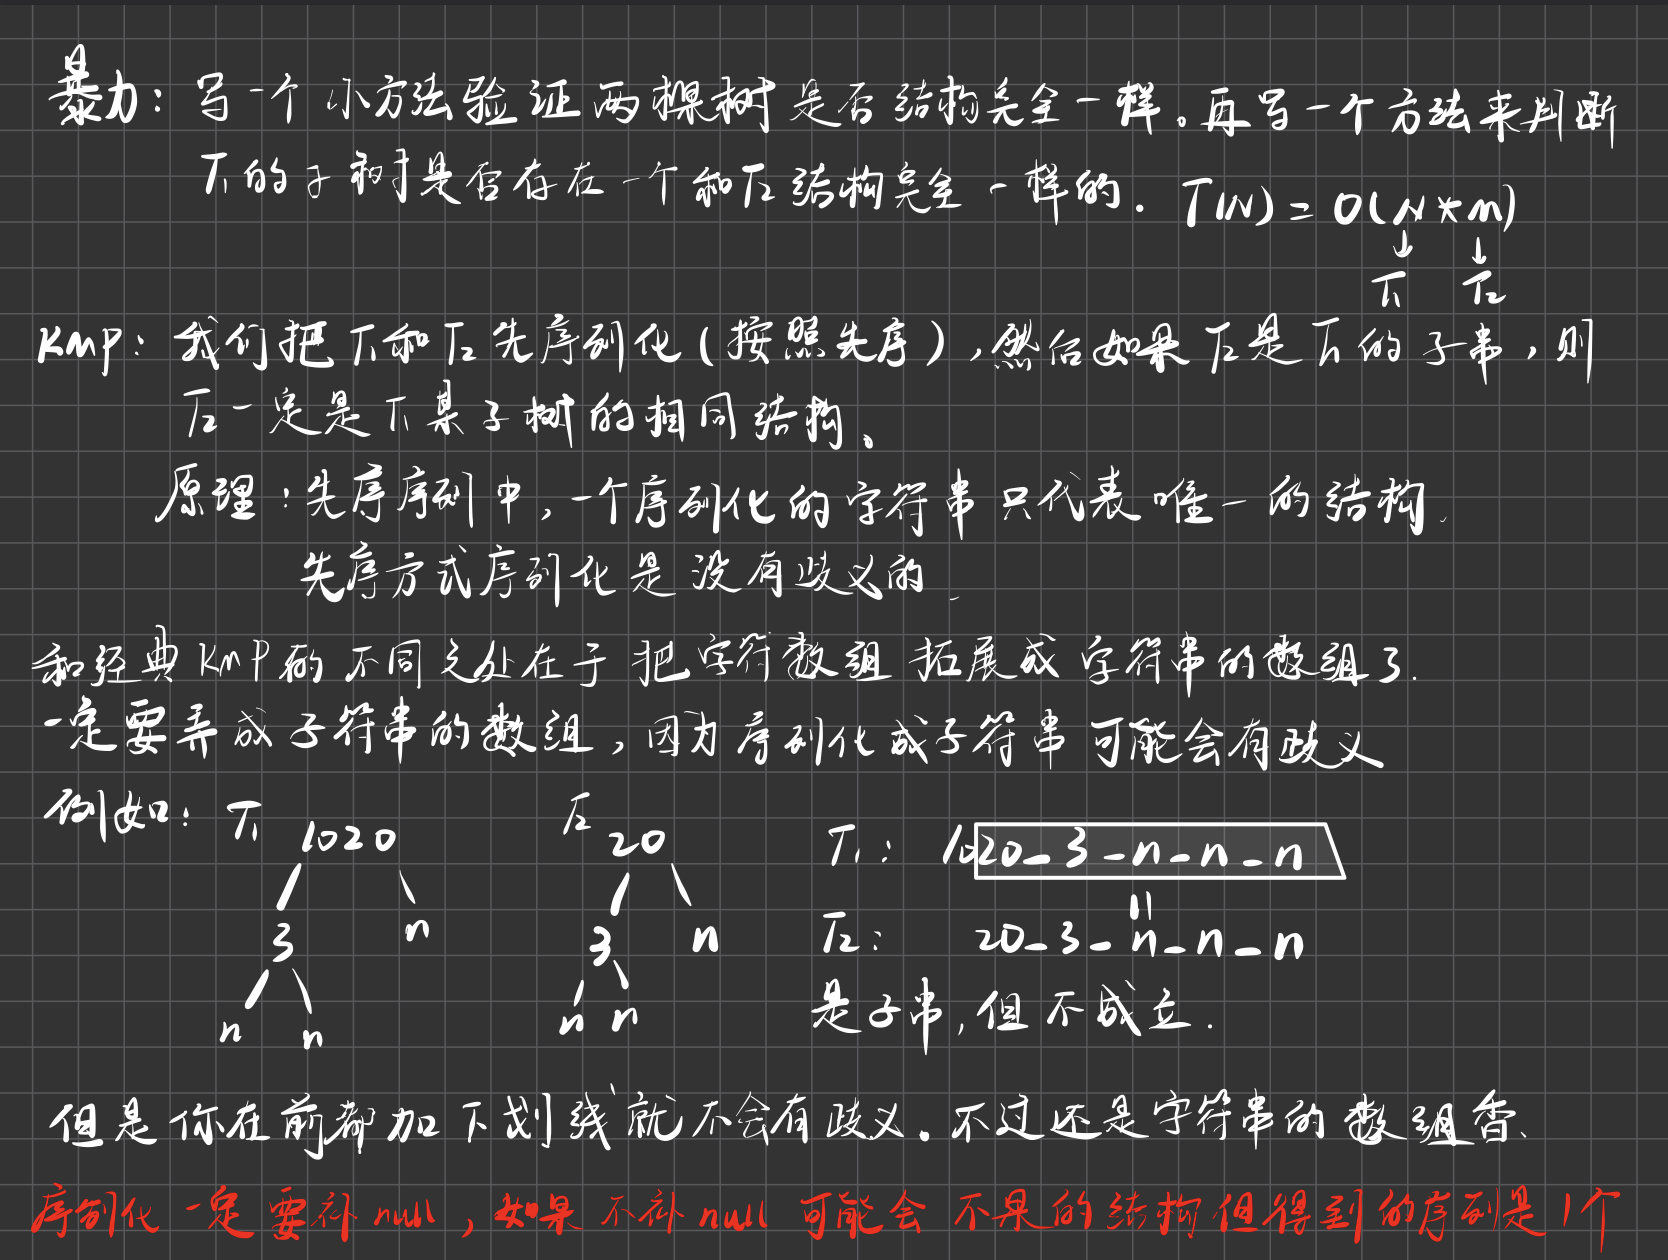 暴力：写一个小方法验证两棵树是否结构完全一样。再写一个方法来判断
T1的子树是否存在一个和T2结构完全一样的. T(N) = O(N * m)
↓ ↓
T1 T2
KMP：我们把T1和T2先序列化(按照先序),然后如果T2是T1的子串,则
T2一定是T1某子树的相同结构。
原理：先序序列中,一个序列化的字符串只代表唯一的结构.
先序方式序列化是没有歧义的.
和经典KMP的不同之处在于把字符数组拓展成字符串的数组了.
一定要弄成子符串的数组,因为序列化成子符串可能会有歧义
例如： T1 T2
1020 20 T1： 1020_3_n_n_n
3 n 3 n T2： 20_3_n_n_n
n n n n 是子串,但不成立.
但是你在前都加下划线就不会有歧义。不过还是字符串的数组香、
序列化一定要补null,如果不补null可能会不果的结构但得到的序列是1个